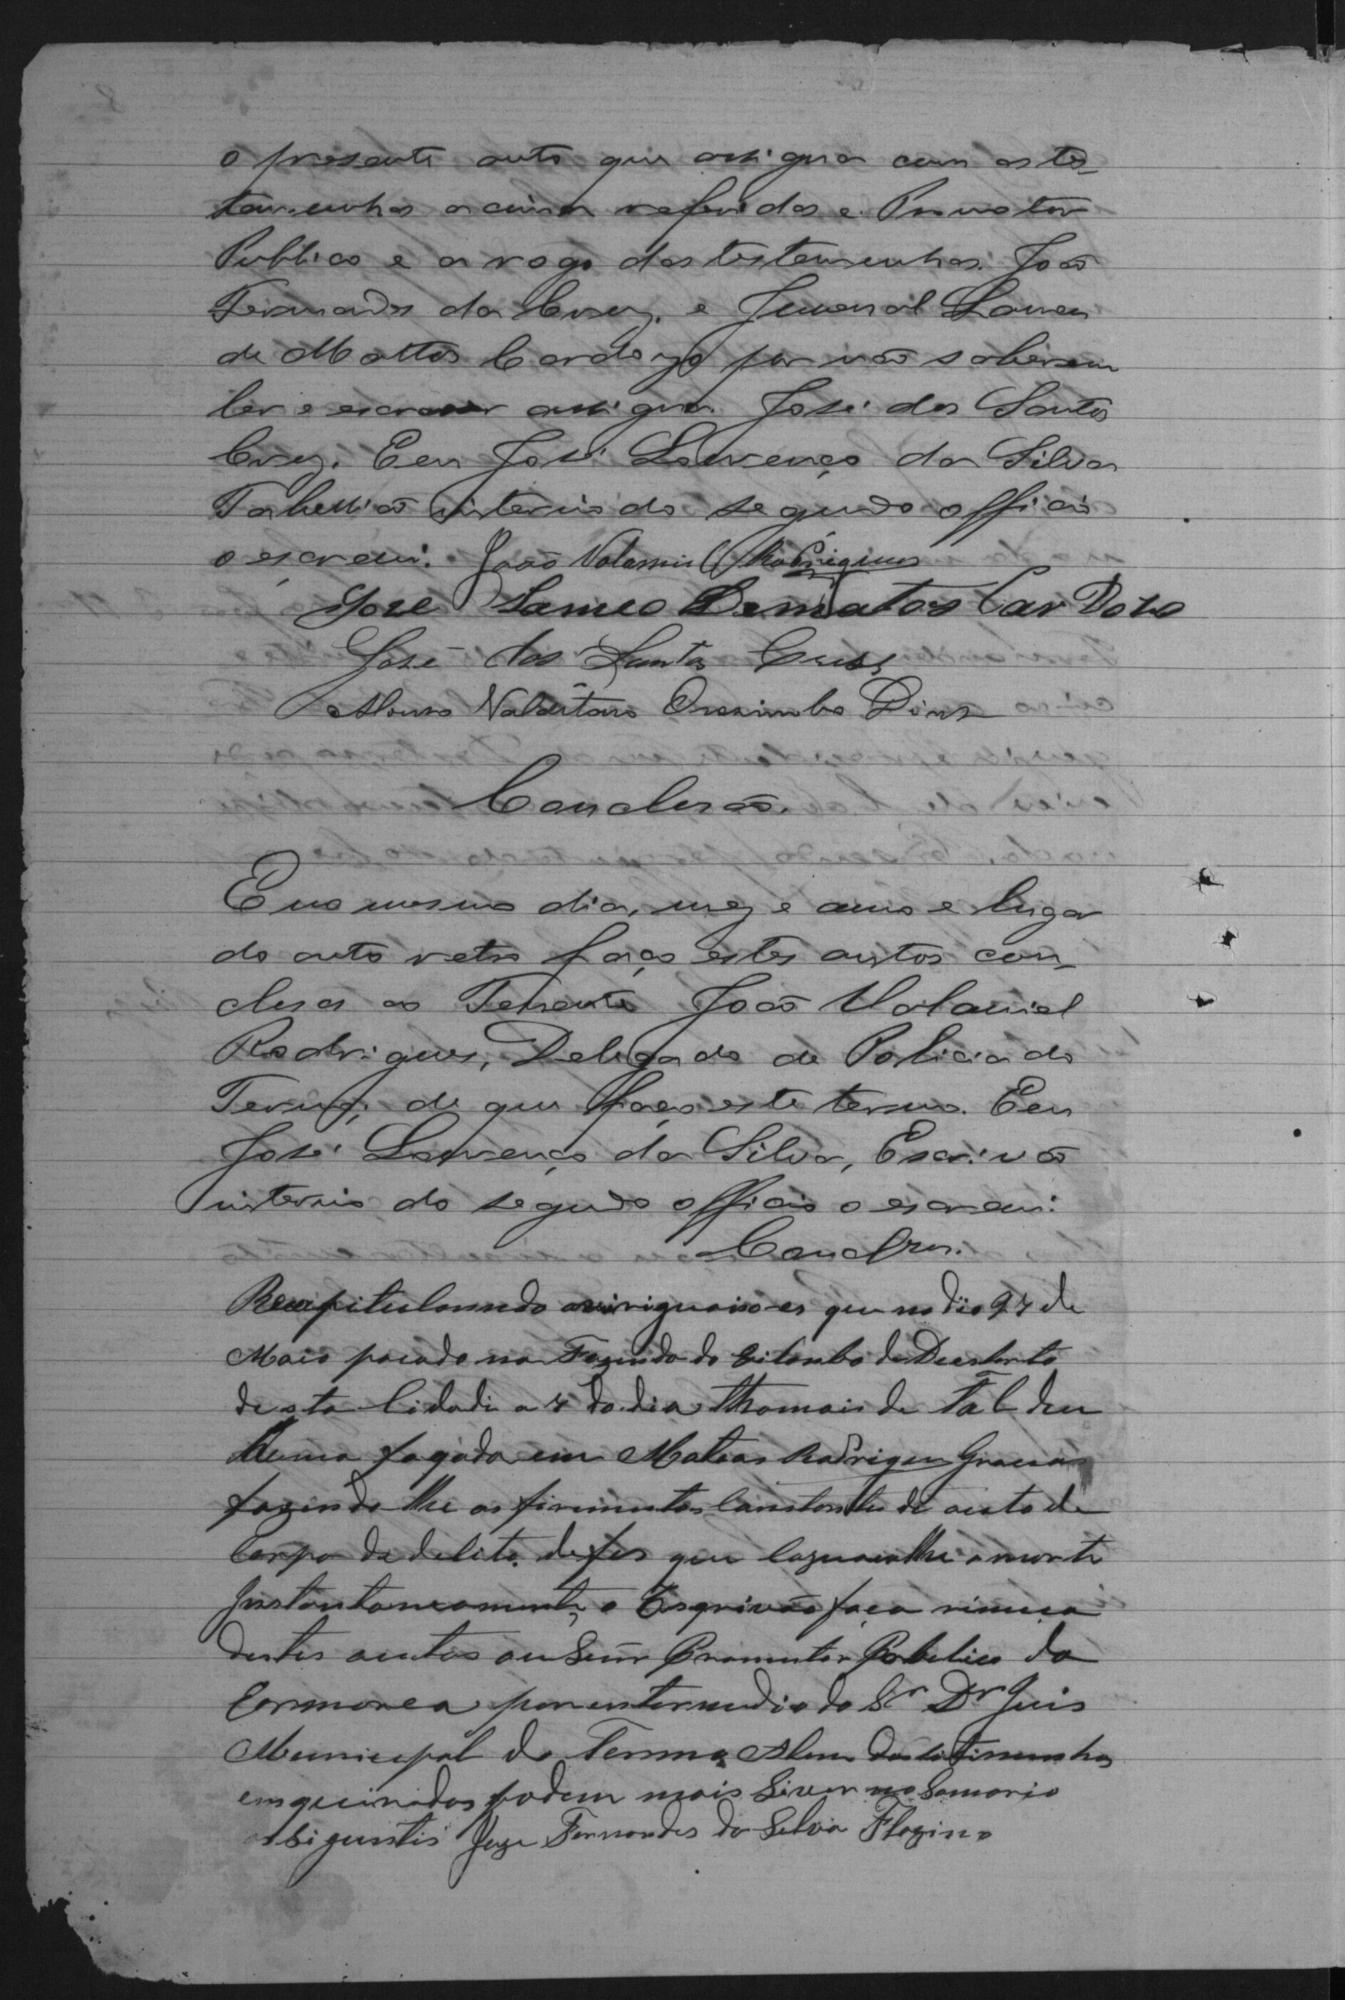 o presente auto que assigna com as tes-
temunhas acima referidas e Promotor
Publico e a rogo das testemunhas João
Fernandes da Cruz, e Juvenal Lameu
de Mattos Cardozo por não saberem
ler e escrever assigna José dos Santos
Cruz. Eeu José Lourenço da Silva
Tabellião interino do segundo officio
o escrevi. João Natamiel Rodrigues
José Lameo Dematos CarDozo
José dos Santos Cruz
Dias
Conclusão.
E no mesmo dia, mez e anno e lugar
do auto retro faço estes autos con-
clusos ao Tenente João Nataniel
Rodrigues, Delegado de Policia do
Termo, de que faço este termo. Eeu
José Lourenço da Silva, Escrivão
interino do segundo officio o escrevi.
Conclzos.
Recapitulando as que no dia 27 de
Maio pacado na Fazenda do do
desta Cidade a 4 do dia Thomais de Tal deu
huma facada em Mateas Rodrigues
fazendo lhe os firimentos Constantes do auto de
Corpo de delito. que a morte
Instantaneamente, o Esqrivão faça rimeca
destes autos au Senr Promutor Pobelico da
Cormonca por entermedio do Sr Dr Juis
Municipal do Termo, Alem das titimunhas
emqueiridas podem mais no Somario
os Siguintis Joze Fernandes da Selva